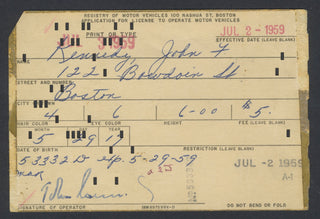 REGISTRY OF MOTOR VEHICLES 100 NASHUA ST, BOSTON
APPLICATION FOR LICENSE TO OPERATE MOTOR VEHICLES
JUL 2 - 1959
1959
PRINT OR TYPE
EFFECTIVE DATE (LEAVE BLANK)
Kennedy, John F
122 Bowdoin St
STREET AND NUMBER
Boston
4 6 6-00 $5.
HAIR COLOR EYE COLOR HEIGHT FEE (LEAVE BLANK)
MONTH
5 29 17
DATE OF BIRTH
5-29-59
JUL - 2 1959
A-1
SIGNATURE OF OPERATOR
DO NOT SEND OR FOLD